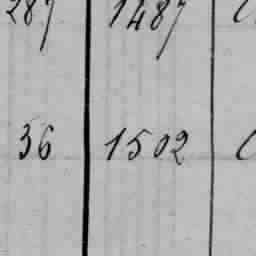 287 1487
36 1502